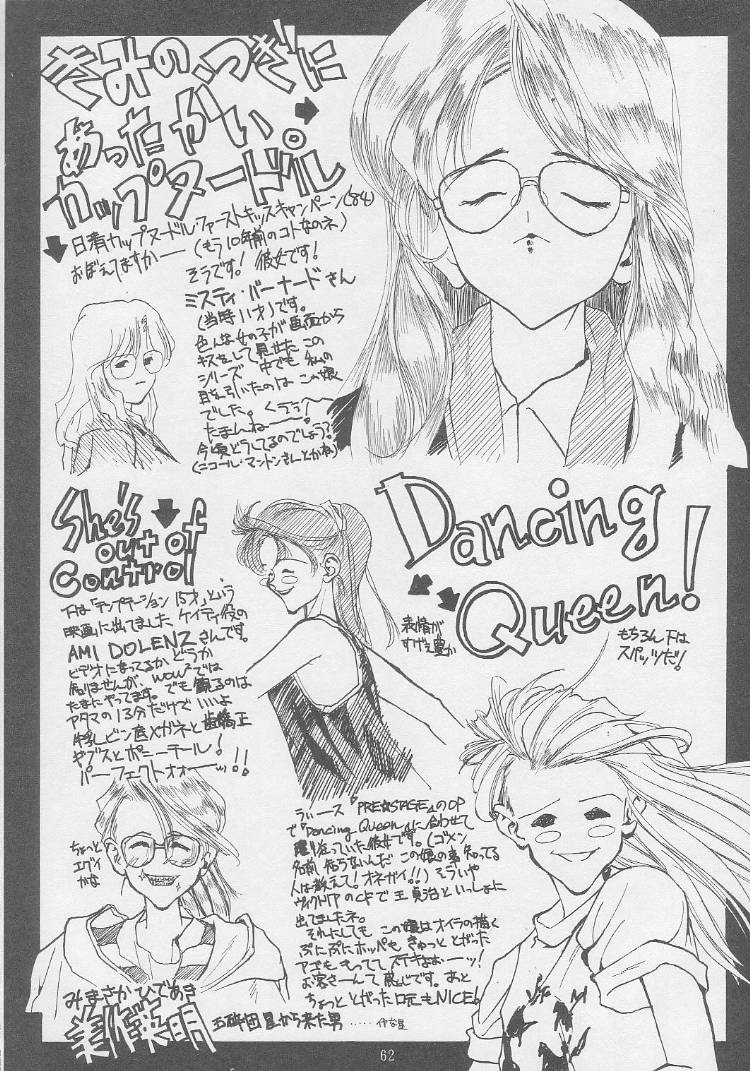 きみの、つぎに
あったかい。
カップヌードル
日清カップヌードルファーストキッスキャンペーン('84)
おぼえてますかー
(もう10年前のコトなのネ)
そうです! 彼女です!
ミスティ・バーナードさん
(当時11才)です。
色んな女の子が画面から
キスをして見せたこの
シリーズ 中でも 私の
目を引いたのは この娘
でした。くうぅ〜
たまんねー
今頃どうしてるのでしょう?
(ニコール・マンドンさんとかね)
She's
out of
Control
下は「テンプテーション15才」という
映画に出てました ケイティ役の
AMI DOLENZ さんです。
ビデオになってるか どうか
知りませんが、wowwowでは
たまにやってます。でも 観るのは
アタマの13分だけでいいよ
牛乳ビン底メガネと歯矯正
ギブスとポニーテール!
パーフェクトォォーッ!!
ちょっと
エグイ
かな
Dancing
Queen!
表情が
すげぇ豊か
もちろん下は
スパッツだ!
うぃース「PRE★STAGE」のOP
で「Dancing Queen」に合わせて
踊り狂っていた彼女です。(ゴメン
名前知らないんだ この娘の事知ってる
人は教えて! オネガイ!!) そういや
ヴィクトリアのCFで王貞治といっしょに
出てましたネ。
それにしても この娘はオイラの描く
ぷにぷにホッペも きゅっと とがった
アゴも もってて ステキよぉーッ!
お客さーんて感じです。あと
ちょっと とがった口元もNICE!
みまさかひであき
美作英明
五反田星から来た男
62